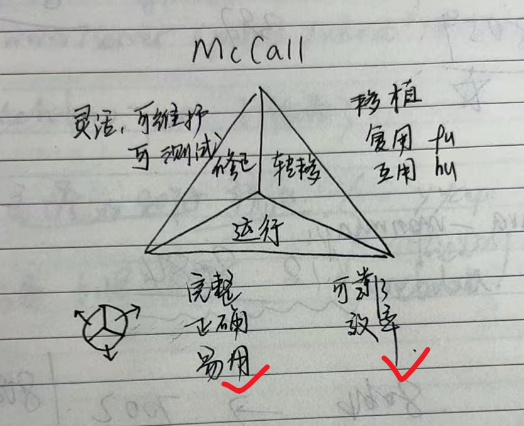 McCall
灵活，可维护
可测试
移植
复用 fu
互用 hu
修正
转移
运行
完整
正确
易用
可靠
效率